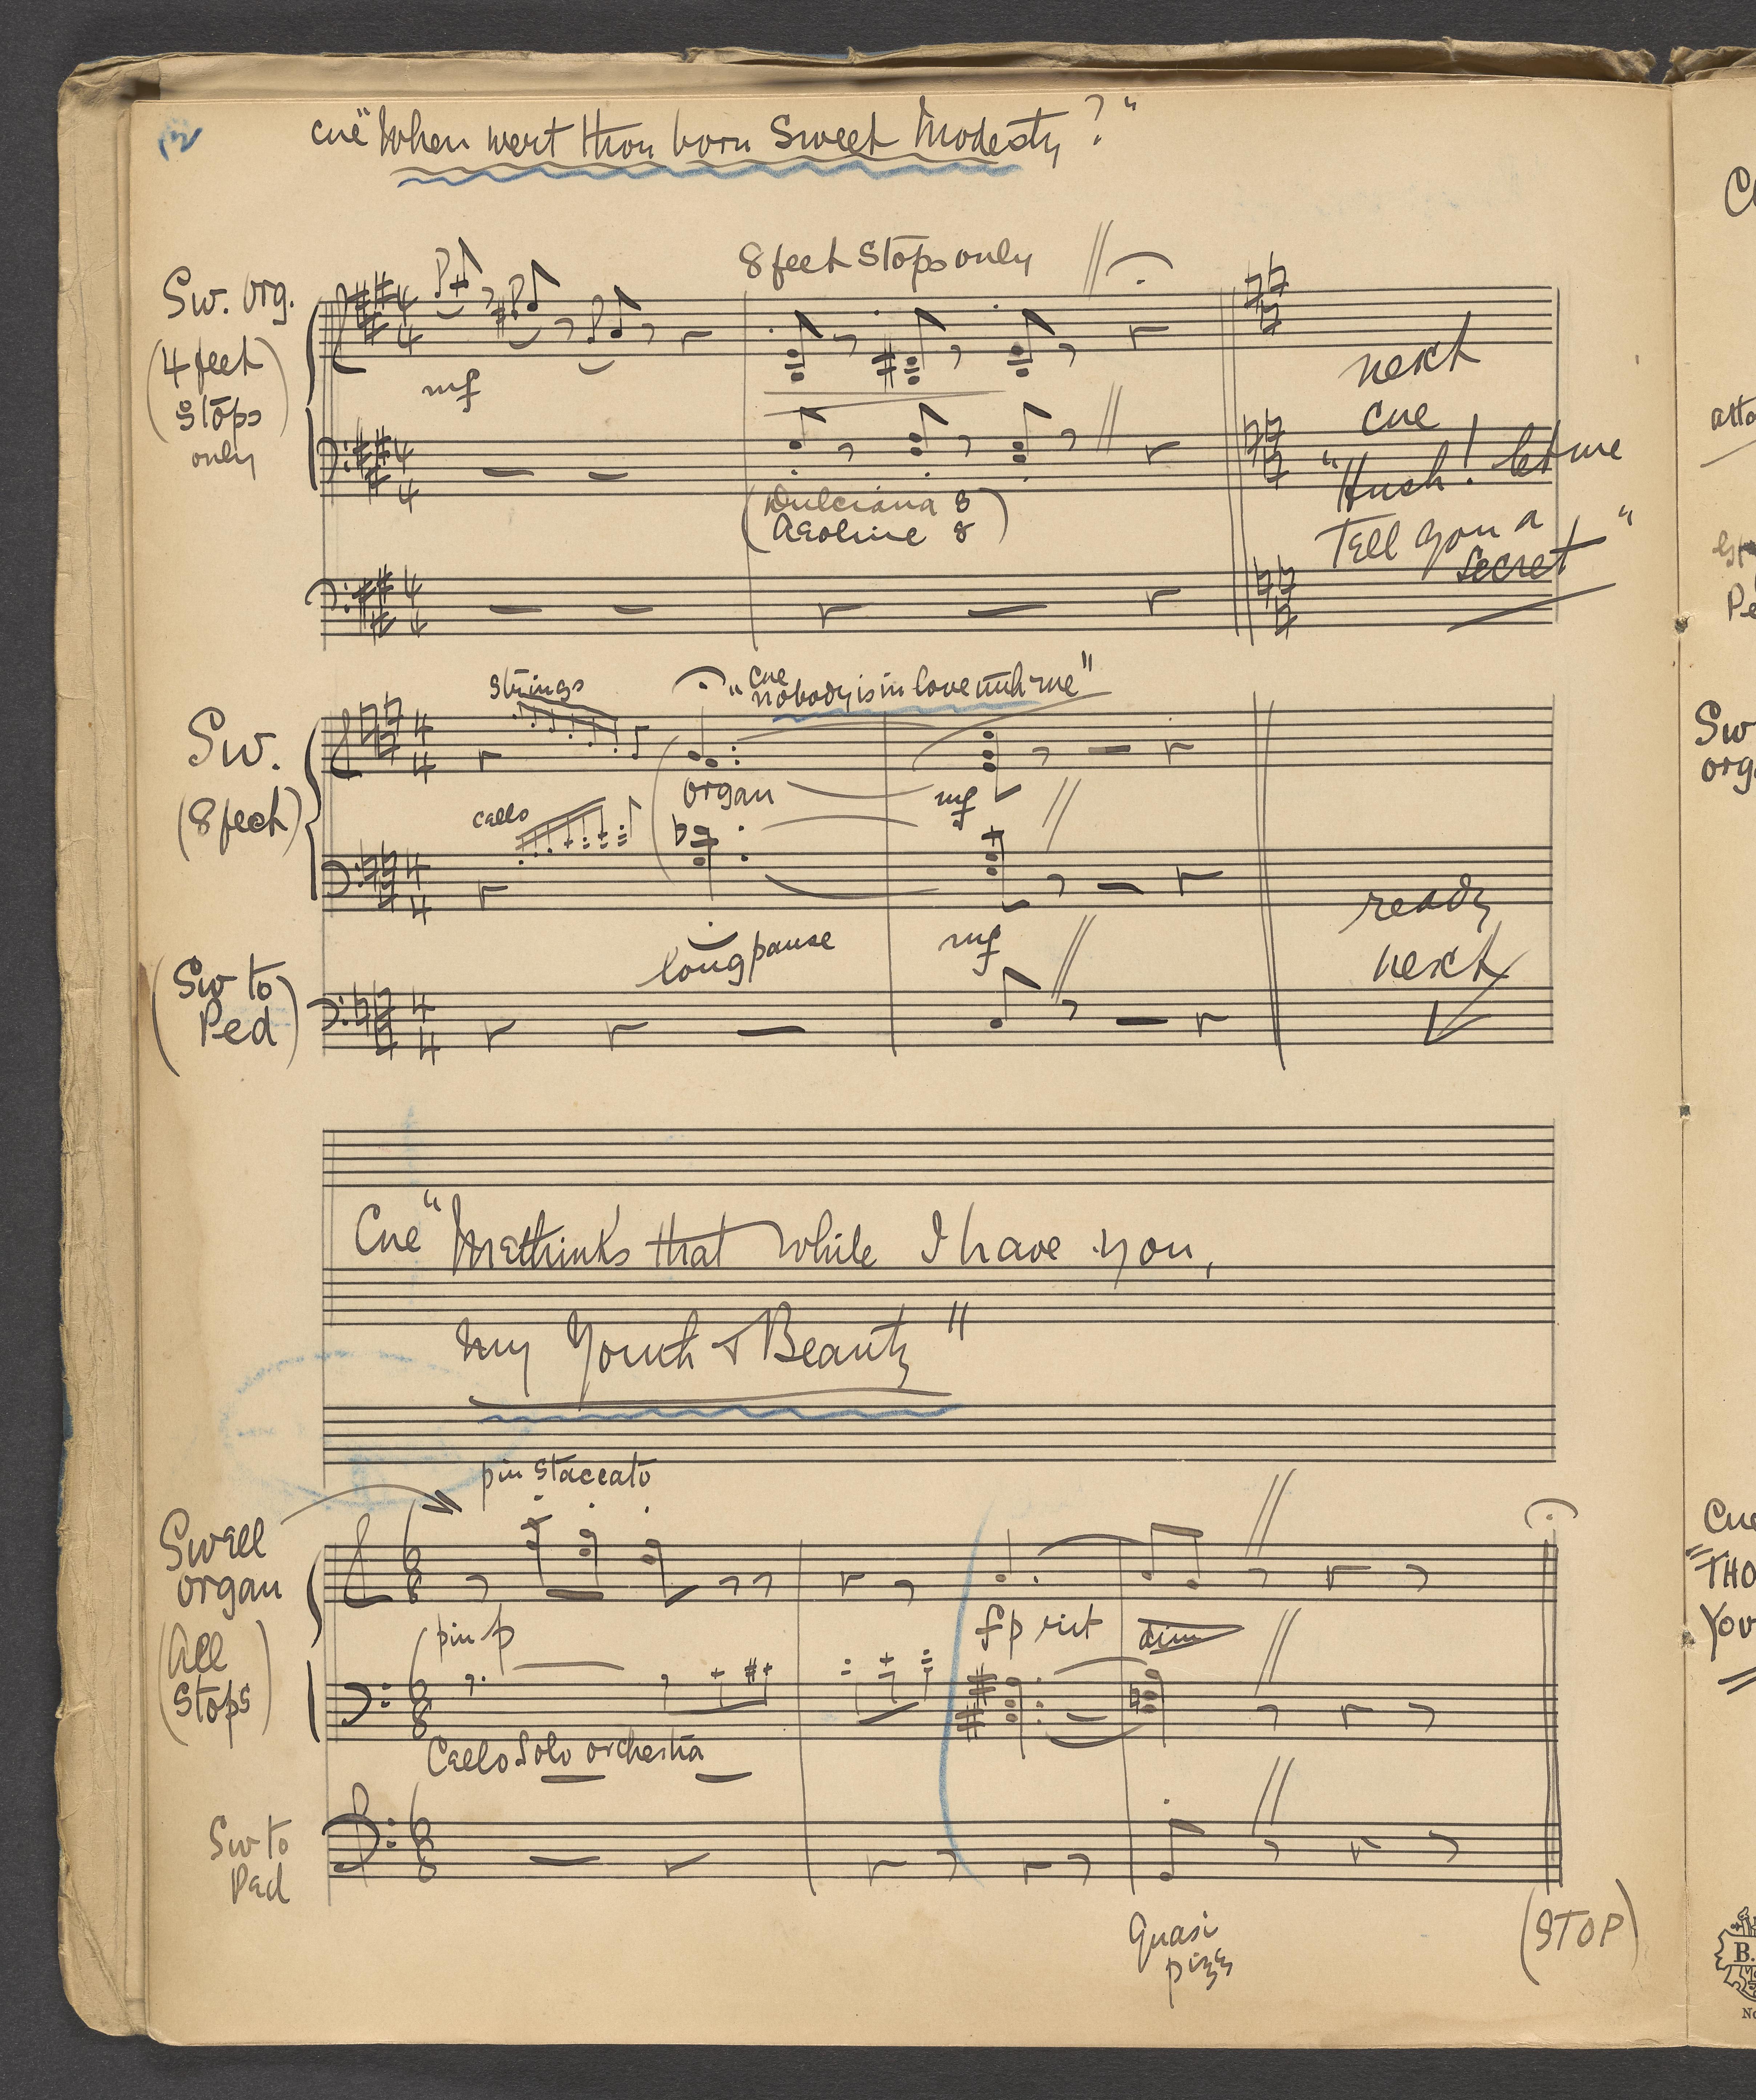 12
cue "When wert thou born Sweet Modesty?"
Sw. org.
(4 feet
stops
only)
8 feet stops only
mf
(Dulciana 8
Aeoline 8)
next
cue
"Hush! let me
Tell you a
Secret"
Sw.
(8 feet)
strings
cue
"nobody is in love with me"
organ
mf
cello
long pause
mf
(Sw to
Ped)
ready
next
Cue "Methinks that while I have you,
my Youth & Beauty"
piu staccato
Swell
organ
(All
stops)
piu p
fp rit
dim
Cello Solo orchestra
Sw to
Ped
Quasi
pizz
(STOP)
Sw
org
Cue
"THO
YOU
B.
No